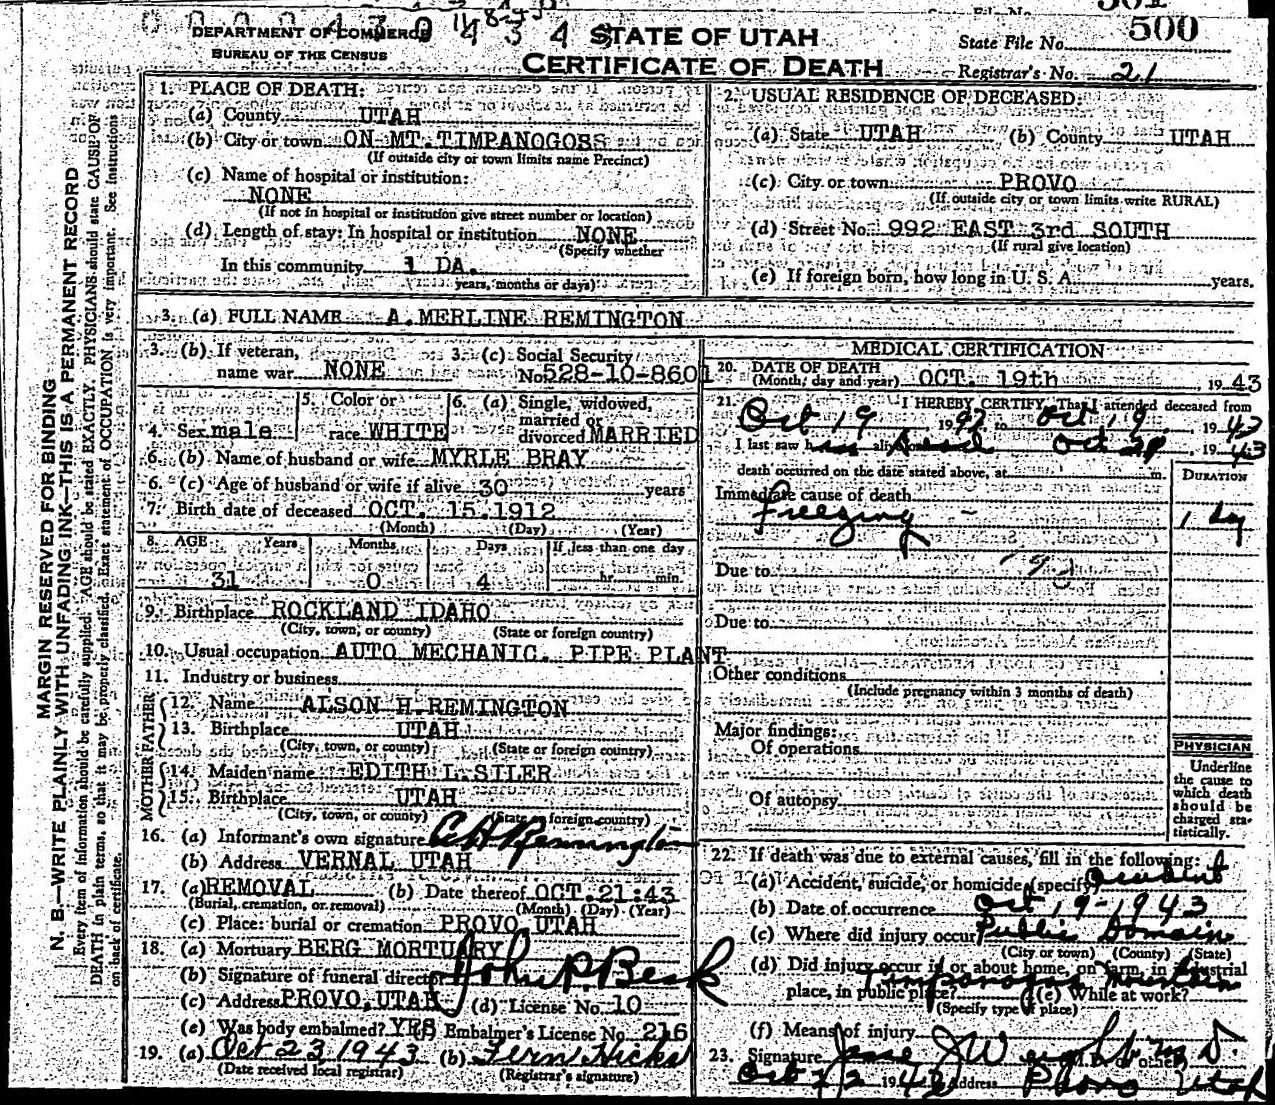 500
DEPARTMENT OF COMMERCE
BUREAU OF THE CENSUS
STATE OF UTAH
CERTIFICATE OF DEATH
State File No.
Registrar's No. 21
MARGIN RESERVED FOR BINDING
N. B.—WRITE PLAINLY WITH UNFADING INK—THIS IS A PERMANENT RECORD
Every item of information should be carefully supplied. AGE should be stated EXACTLY. PHYSICIANS should state CAUSE OF
DEATH in plain terms, so that it may be properly classified. Exact statement of OCCUPATION is very important. See instructions
on back of certificate.
1. PLACE OF DEATH:
(a) County UTAH
(b) City or town ON MT. TIMPANOGOSS
(If outside city or town limits name Precinct)
(c) Name of hospital or institution:
NONE
(If not in hospital or institution give street number or location)
(d) Length of stay: In hospital or institution NONE
(Specify whether
In this community 1 DA.
years, months or days)
2. USUAL RESIDENCE OF DECEASED:
(a) State UTAH (b) County UTAH
(c) City or town PROVO
(If outside city or town limits write RURAL)
(d) Street No. 992 EAST 3rd SOUTH
(If rural give location)
(e) If foreign born, how long in U. S. A. years.
3. (a) FULL NAME A. MERLINE REMINGTON
3. (b) If veteran, name war NONE
3. (c) Social Security No. 528-10-8601
4. Sex male
5. Color or race WHITE
6. (a) Single, widowed, married or divorced MARRIED
6. (b) Name of husband or wife MYRLE BRAY
6. (c) Age of husband or wife if alive 30 years
7. Birth date of deceased OCT. 15. 1912
(Month) (Day) (Year)
8. AGE Years Months Days If less than one day
31 0 4 hr. min.
9. Birthplace ROCKLAND IDAHO
(City, town, or county) (State or foreign country)
10. Usual occupation AUTO MECHANIC. PIPE PLANT
11. Industry or business
FATHER
12. Name ALSON H. REMINGTON
13. Birthplace UTAH
(City, town, or county) (State or foreign country)
MOTHER
14. Maiden name EDITH L. SILER
15. Birthplace UTAH
(City, town, or county) (State or foreign country)
16. (a) Informant's own signature A H Remington
(b) Address VERNAL UTAH
17. (a) REMOVAL (b) Date thereof OCT. 21:43
(Burial, cremation, or removal) (Month) (Day) (Year)
(c) Place: burial or cremation PROVO UTAH
18. (a) Mortuary BERG MORTUARY
(b) Signature of funeral director
(c) Address PROVO, UTAH (d) License No. 10
(e) Was body embalmed? YES Embalmer's License No. 216
19. (a) Oct 23 1943 (b) Fern Hicks
(Date received local registrar) (Registrar's signature)
MEDICAL CERTIFICATION
20. DATE OF DEATH
(Month, day and year) OCT. 19th, 1943
21. I HEREBY CERTIFY, That I attended deceased from
Oct 19 to Oct 19, 19
I last saw h alive Dead Oct 1943
death occurred on the date stated above, at m.
DURATION
Immediate cause of death
Freezing 1 day
Due to
Due to
Other conditions
(Include pregnancy within 3 months of death)
Major findings:
Of operations
Of autopsy
PHYSICIAN
Underline
the cause to
which death
should be
charged sta-
tistically.
22. If death was due to external causes, fill in the following:
(a) Accident, suicide, or homicide (specify) Accident
(b) Date of occurrence Oct 19-1943
(c) Where did injury occur Public Domain
(City or town) (County) (State)
(d) Did injury occur in or about home, on farm, in industrial
place, in public place? Timpanogas Mountain
(Specify type of place) (e) While at work?
(f) Means of injury
23. Signature
Address Provo Utah